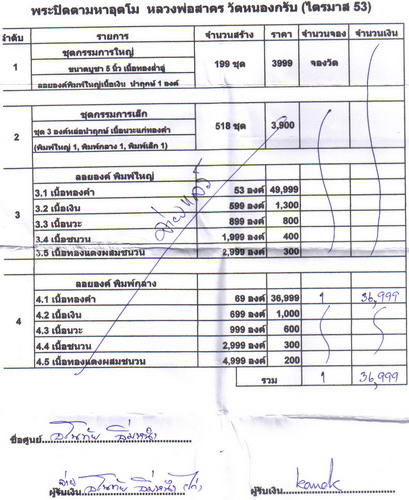 พระปิดตามหาอุตโม หลวงพ่อสาคร วัดหนองกรับ (ไตรมาส 53)
ลำดับ รายการ จำนวนสร้าง ราคา จำนวนจอง จำนวนเงิน
ชุดกรรมการใหญ่
1 ขนาดบูชา 5 นิ้ว เนื้อทองฝาอู่ 199 ชุด 3999 จองวัด
ลอยองค์พิมพ์ใหญ่เนื้อเงิน ปาฤกษ์ 1 องค์
ชุดกรรมการเล็ก
2 ชุด 3 องค์หล่อปาฤกษ์ เนื้อนวะแก่ทองคำ 518 ชุด 3,900
(พิมพ์ใหญ่ 1, พิมพ์กลาง 1, พิมพ์เล็ก 1)
ลอยองค์ พิมพ์ใหญ่
3.1 เนื้อทองคำ 53 องค์ 49,999
3.2 เนื้อเงิน 599 องค์ 1,300
3 3.3 เนื้อนวะ 899 องค์ 800
3.4 เนื้อชนวน 1,999 องค์ 400
3.5 เนื้อทองแดงผสมชนวน 2,999 องค์ 300
ลอยองค์ พิมพ์กลาง
4.1 เนื้อทองคำ 69 องค์ 36,999 1 36,999
4.2 เนื้อเงิน 699 องค์ 1,000
4 4.3 เนื้อนวะ 999 องค์ 600
4.4 เนื้อชนวน 2,999 องค์ 300
4.5 เนื้อทองแดงผสมชนวน 4,999 องค์ 200
รวม 1 36,999
ชื่อศูนย์
ผู้รับเงิน ผู้รับเงิน kanok